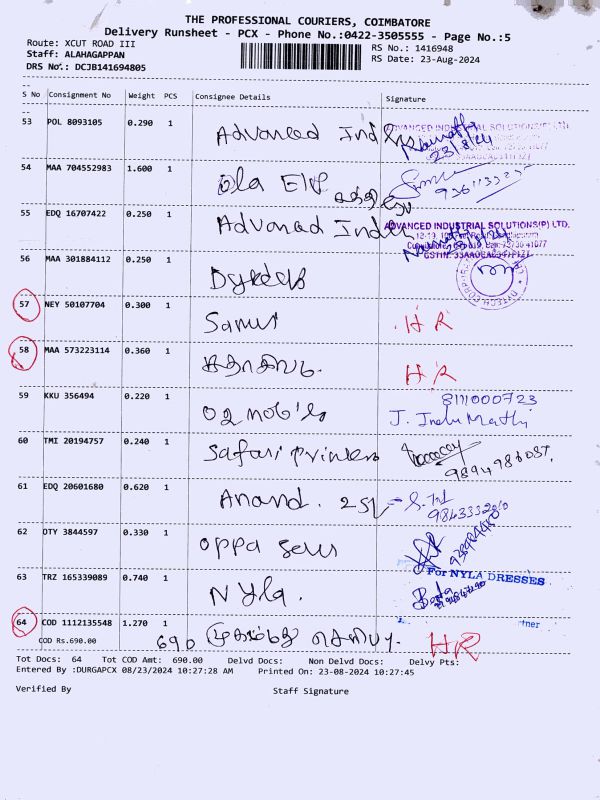 THE PROFESSIONAL COURIERS, COIMBATORE
Delivery Runsheet - PCX - Phone No.:0422-3505555 - Page No.:5
Route: XCUT ROAD III
RS No.: 1416948
Staff: ALAHAGAPPAN
RS Date: 23-Aug-2024
DRS No.: DCJB141694805
S No Consignment No Weight PCS Consignee Details Signature
53 POL 8093105 0.290 1 Advanced Ind
23/8/24
54 MAA 704552983 1.600 1 Ola
55 EDQ 16707422 0.250 1 Advanced
ADVANCED INDUSTRIAL SOLUTIONS(P) LTD.
56 MAA 301884112 0.250 1
57 NEY 50107704 0.300 1 HR
58 MAA 573223114 0.360 1 HR
8111000723
59 KKU 356494 0.220 1 J. Indu Mathi
60 TMI 20194757 0.240 1 Safari printers
61 EDQ 20601680 0.620 1 Anand.
62 OTY 3844597 0.330 1 oppa
For NYLA DRESSES
63 TRZ 165339089 0.740 1 Nyla.
64 COD 1112135548 1.270 1
COD Rs.690.00 690 HR
Tot Docs: 64 Tot COD Amt: 690.00 Delvd Docs: Non Delvd Docs: Delvy Pts:
Entered By :DURGAPCX 08/23/2024 10:27:28 AM Printed On: 23-08-2024 10:27:45
Verified By Staff Signature